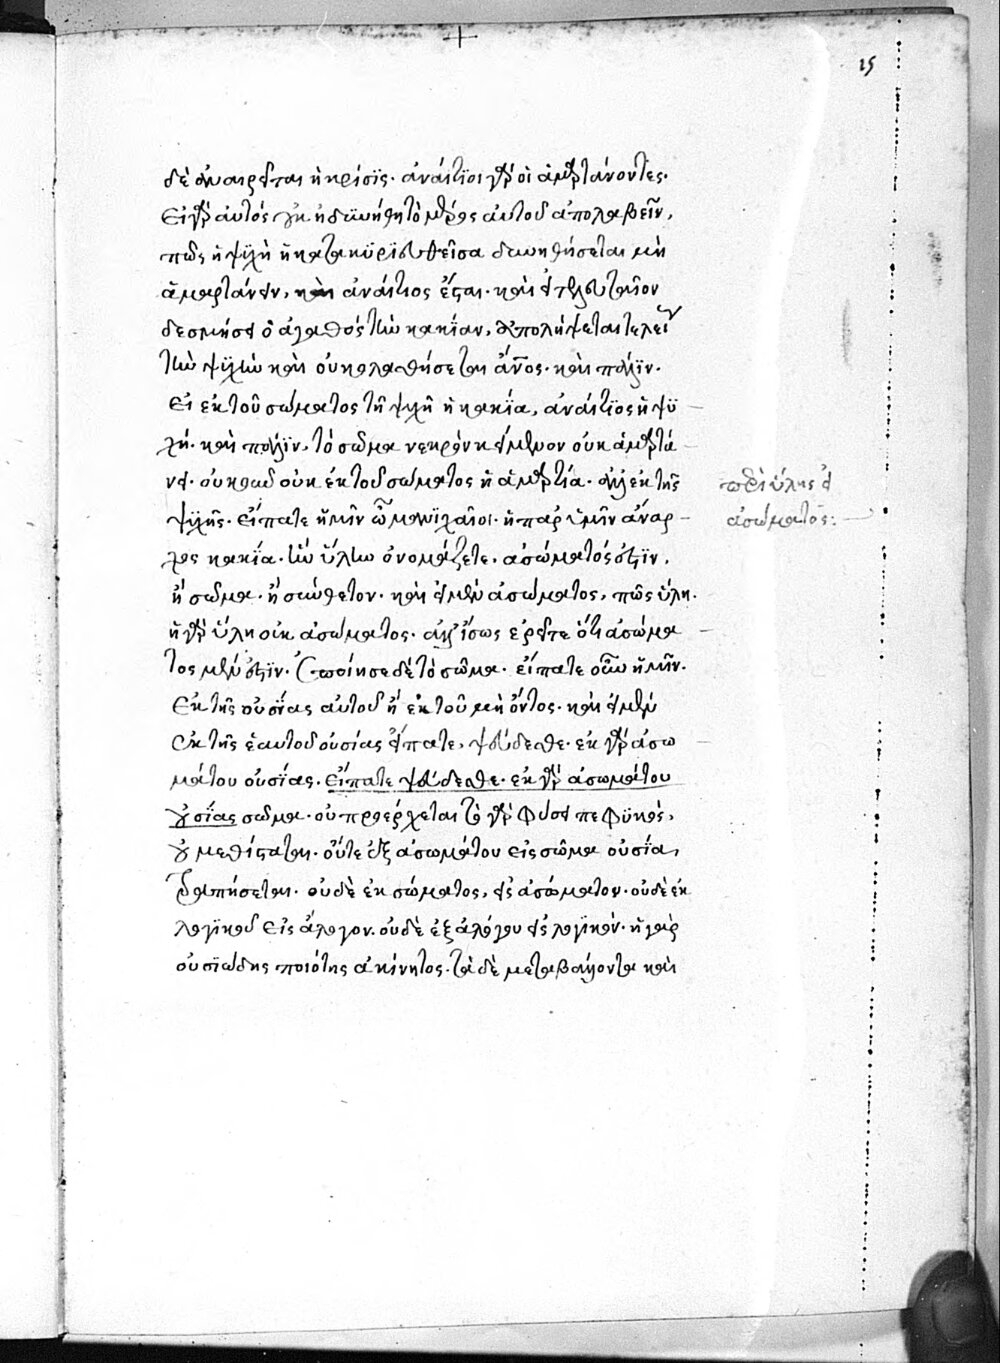 25
δὲ ἀναιρεῖται ἡ κρίσϊς· ἀναίτϊοι γὰρ οἱ ἁμαρτάνοντες·
Εἰ γὰρ αὐτὸς οὐκ ἠδϋνήθη τὸ μέρος αὐτοῦ ἀπολαβεῖν,
πῶς ἡ ψϋχὴ ἡ κατακϋρϊευθεῖσα δυνηθήσεται μὴ
ἁμαρτάνειν, καὶ ἀναίτιος ἔσται· καὶ εἰ τελευταῖον
δεσμήσει ὁ ἀγαθός τὴν κακΐαν, ἀπολήψεται τελείαν
τὴν ψϋχὴν καὶ οὐ κολασθήσεται ἄνος· καὶ πάλϊν·
Ει εκ τοῦ σώματος τῆ ψυχῆ ἡ κακΐα, ἀναίτϊος ἡ ψϋ
χή· καὶ πάλϊν, τὸ σῶμα νεκρὸν κείμενον οὐκ ἁμαρτά
νει· οὐκοῦν οὐκ ἐκ τοῦ σώματος ἡ ἁμαρτία· ἀλλ ἐκ τῆς
ψϋχῆς· Εἴπατε ἡμῖν ὦ μανϊχαῖοι· ἡ παρ ὑμῖν ἄναρ
χος κακΐα· ἣν ὕλην ὀνομάζετε· ἀσώματός ἐστϊν,
ἢ σῶμα· ἢ σύνθετον· καὶ εἰ μὲν ἀσώματος, πῶς ὕλη·
ἡ γὰρ ὕλη οὐκ ἀσώματος· ἀλλ ἴσως ἐρεῖτε ὅτι ἀσώμα
τος μέν ἐστϊν· ἐποίησε δὲ τὸ σῶμα· εἴπατε οὖν ἡμῖν·
Εκ τῆς οὐσΐας αὐτοῦ ἢ ἐκ τοῦ μὴ ὄντος· καὶ εἰ μὲν
ἐκ τῆς ἑαυτοῦ οὐσίας εἴπατε, ψεύδεσθε· ἐκ γὰρ ἀσω
μάτου οὐσΐας· εἴπατε ψεύδεσθε· ἐκ γὰρ ἀσωμάτου
οὐσΐας σῶμα· οὐ προέρχεται τὸ γὰρ φύσει πεφϋκὸς,
οὐ μεθίσταται· οὔτε ἐξ ἀσωμάτου εἰς σῶμα οὐσΐα,
τραπήσεται· οὐδὲ ἐκ σώματος, εἰς ἀσώματον· οὐδὲ ἐκ
λογϊκοῦ εἰς ἄλογον· οὐδὲ ἐξ ἀλόγου εἰς λογϊκόν· ἡ γὰρ
οὐσϊώδης ποιότης ἀκίνητος· τὰ δὲ μεταβάλλοντα καὶ
περὶ ὕλης εἰ
ἀσώματος: